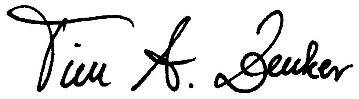 Tim A. Denker